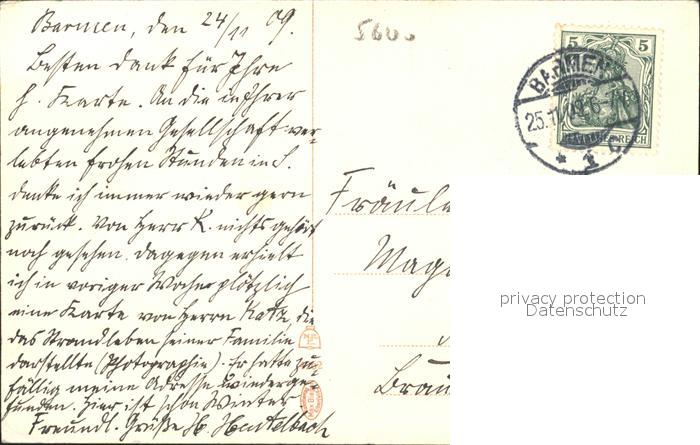 Barmen, den 24/11 09.
Besten Dank für Ihre
h. Karte. An die in Ihrer
angenehmen Gesellschaft ver-
lebten frohen Stunden in S.
denke ich immer wieder gern
zurück. Von Herr K. nichts gehört
noch gesehen, dagegen erhielt
ich in voriger Woche plötzlich
eine Karte von Herrn Katz, die
das Strandleben seiner Familie
darstellte (Photographie). Er hatte zu-
fällig meine Adresse wiederge-
funden. Hier ist schon Winter
Freundl. Grüße H.
5600
5 5
DEUTSCHES REICH
BARMEN
25.11.09.6-7
* 1 c
Fräule
Mag
Brau
privacy protection
Datenschutz